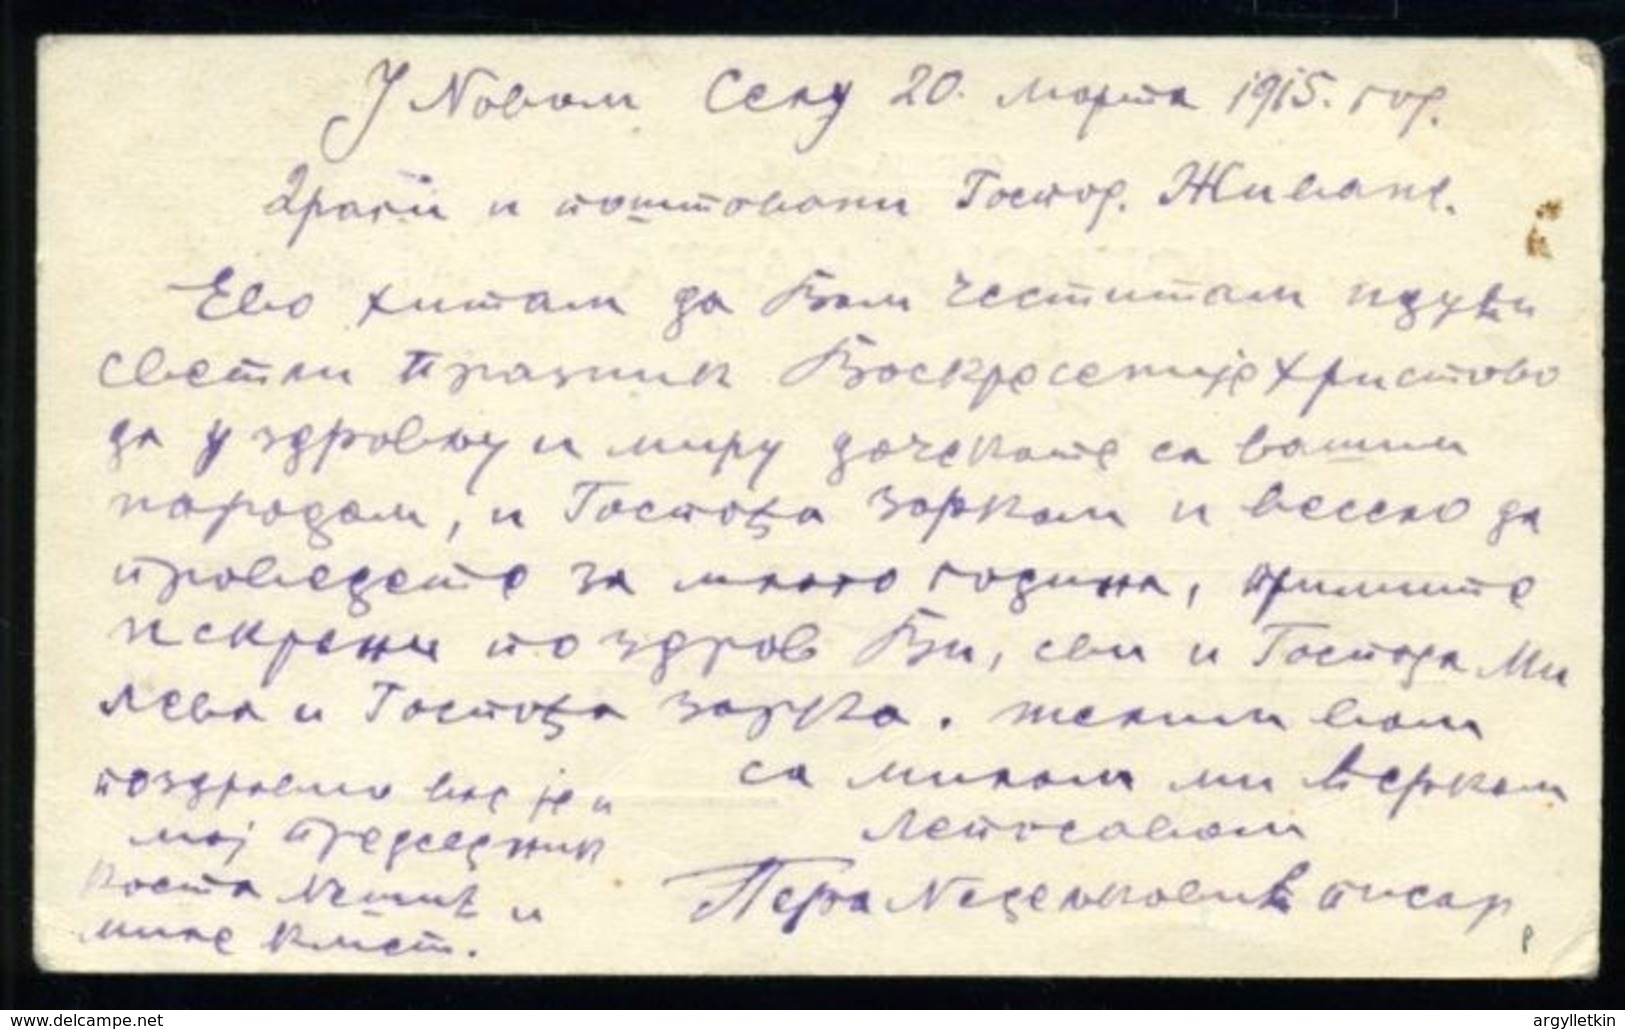 У Новом Селу 20. марта 1915. год.
Драги и поштовани Господ. Живане.
Ево хитам да Вам честитам идући
светли празник Воскресеније Христово
да у здрављу и миру дочекате са вашим
породом, и Госпођа Зорком и весело да
проведете за много година, примите
искрени поздрав Ви, сви и Госпођа Ми
лева и Госпођа Зорка. желим вам
са милом ми Верком
Лепосавом
Пера Недељковић писар
поздравио вас је и
мој председник
Коста и
мине кмет.
www.delcampe.net
argylletkin